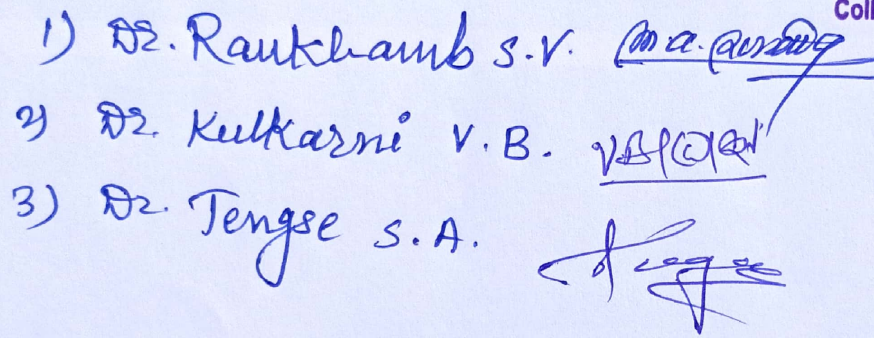 Coll
1) Dr. Raukhamb S.V.
2) Dr. Kulkarni V.B.
3) Dr. Tengse S.A.